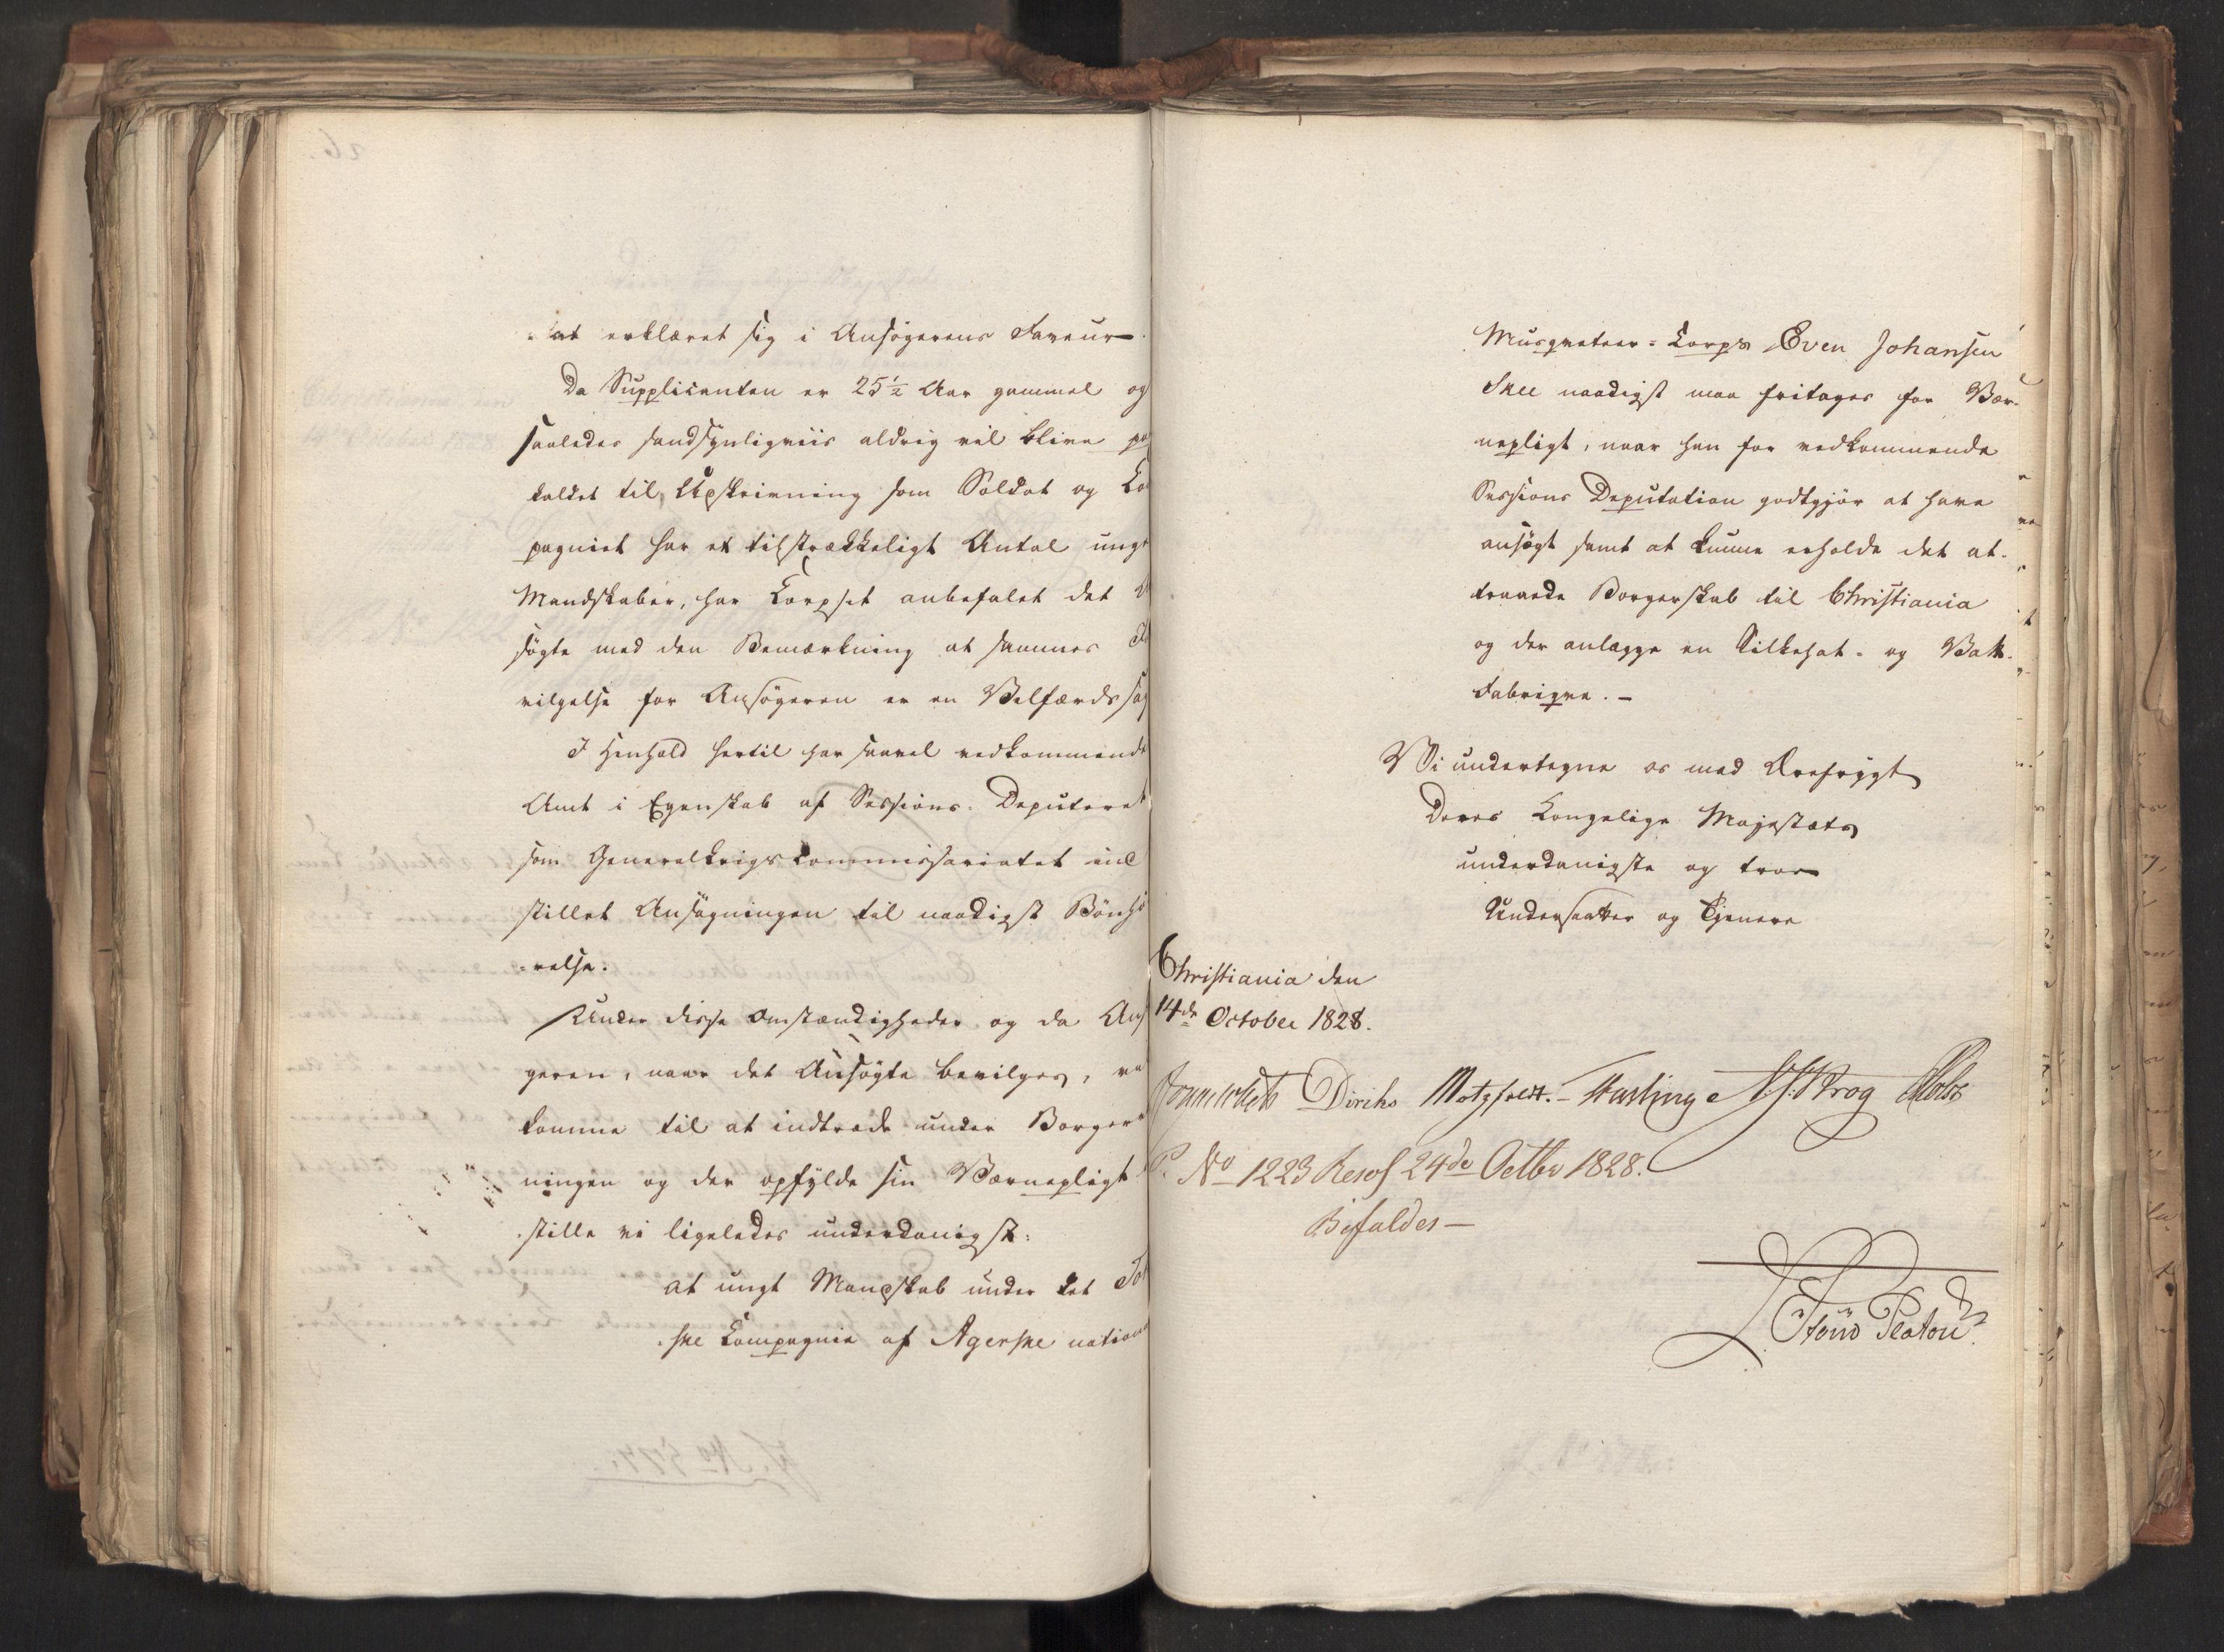 tat erklæret sig i Ansøgerens Faveur.
Da Supplicanten er 25½ Aar gammel og
saaledes sandsynligviis aldrig vil blive på
kaldet til Udskrivning som Soldat og Co
pagniet har et tilstrækkeligt Antal unge
Mandskaber, har Corpset anbefalet det A
søgte med den Bemærkning at sammes
vilgelse for Ansøgeren er en Velfærdssag
I Henhold hertil har saavel vedkommende
Amt i Egenskab af Sessions-Deputeret
som Generalkrigscommissariatet ind
stillet Ansøgningen til naadigst Bønhø
=relse.
Under disse Omstændigheder og da Ans
geren, naar det Ansøgte bevilges, vi
komme til at indtræde under Borgerv
ningen og der opfylde sin Værnepligt
stille vi ligeledes underdanigst:
at ungt Mandskab under det
ske Compagnie af Agerske nation
Musqueteer-Corps Even Johansen
Skee naadigst maa fritages for Vær-
nepligt, naar han for vedkommende
Sessions Deputation godtgjør at have
ansøgt samt at kunne erholde det at-
traaede Borgerskab til Christiania
og der anlægge en Silkehat- og Vatt-
Fabrique.-
Vi undertegne os med Ærefrygt
Deres Kongelige Majestæts
underdanigste og troe
Undersaatter og Tjenere
Christiania den
14de October 1828.
Diriks Motzfeldt.- Fasting Krog Holst
P. No 1223 Resol 24de Octbr 1828.
Bifaldes-
Platou